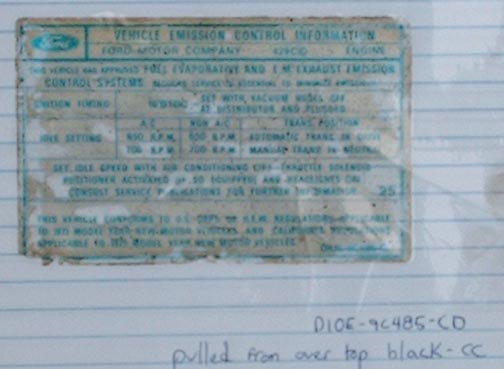 Ford
VEHICLE EMISSION CONTROL INFORMATION
FORD MOTOR COMPANY 429CID ENGINE
THIS VEHICLE HAS APPROVED FUEL EVAPORATIVE AND EXHAUST EMISSION
CONTROL SYSTEMS REGULAR SERVICE IS ESSENTIAL TO MINIMIZE EMISSIONS
IGNITION TIMING SET WITH VACUUM HOSES OFF
AT DISTRIBUTOR AND PLUGGED
A/C NON A/C TRANS. POSITION
IDLE SETTING R.P.M. 600 R.P.M. AUTOMATIC TRANS. IN DRIVE
700 R.P.M. 700 R.P.M. MANUAL TRANS. IN NEUTRAL
SET IDLE SPEED WITH AIR CONDITIONING OFF THROTTLE SOLENOID
POSITIONER ACTIVATED IF SO EQUIPPED AND HEADLIGHTS ON
CONSULT SERVICE PUBLICATIONS FOR FURTHER INFORMATION 25
THIS VEHICLE CONFORMS TO U.S. DEPT. OF H.E.W. REGULATIONS APPLICABLE
TO 1971 MODEL YEAR NEW MOTOR VEHICLES AND CALIFORNIA REGULATIONS
APPLICABLE TO 1971 MODEL YEAR NEW MOTOR VEHICLES
D1OE-9C485-CD
pulled from over top black-CC